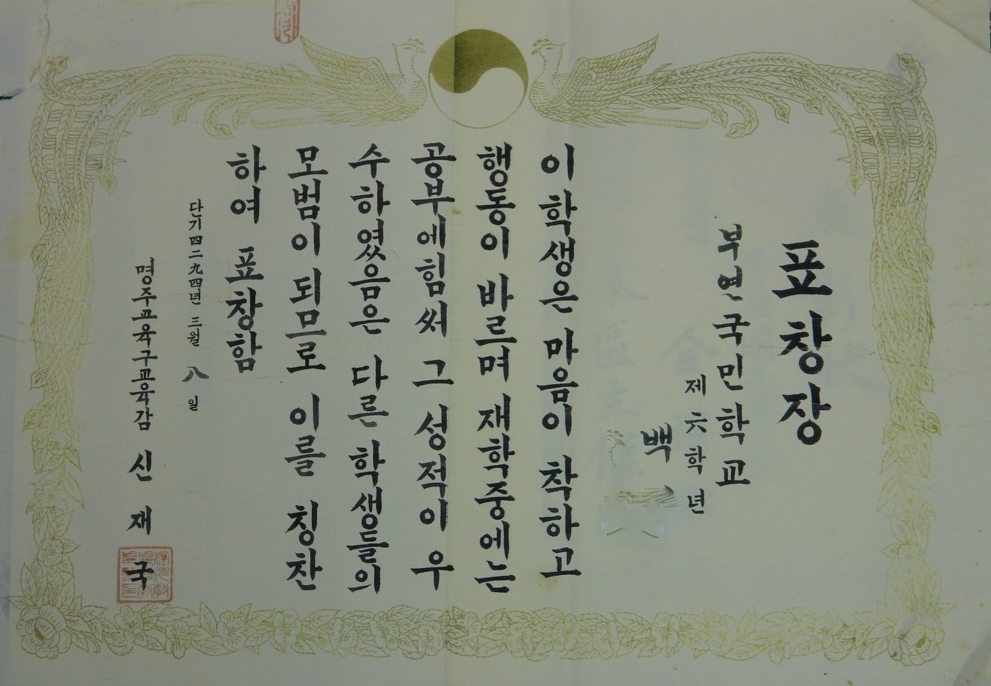 표창장
부연국민학교
제六학년
백
이 학생은 마음이 착하고
행동이 바르며 재학중에는
공부에힘써 그 성적이 우
수하였음은 다른 학생들의
모범이 되므로 이를 칭찬
하여 표창함
단기四二九四년 三월 八일
명주교육구교육감 신재국